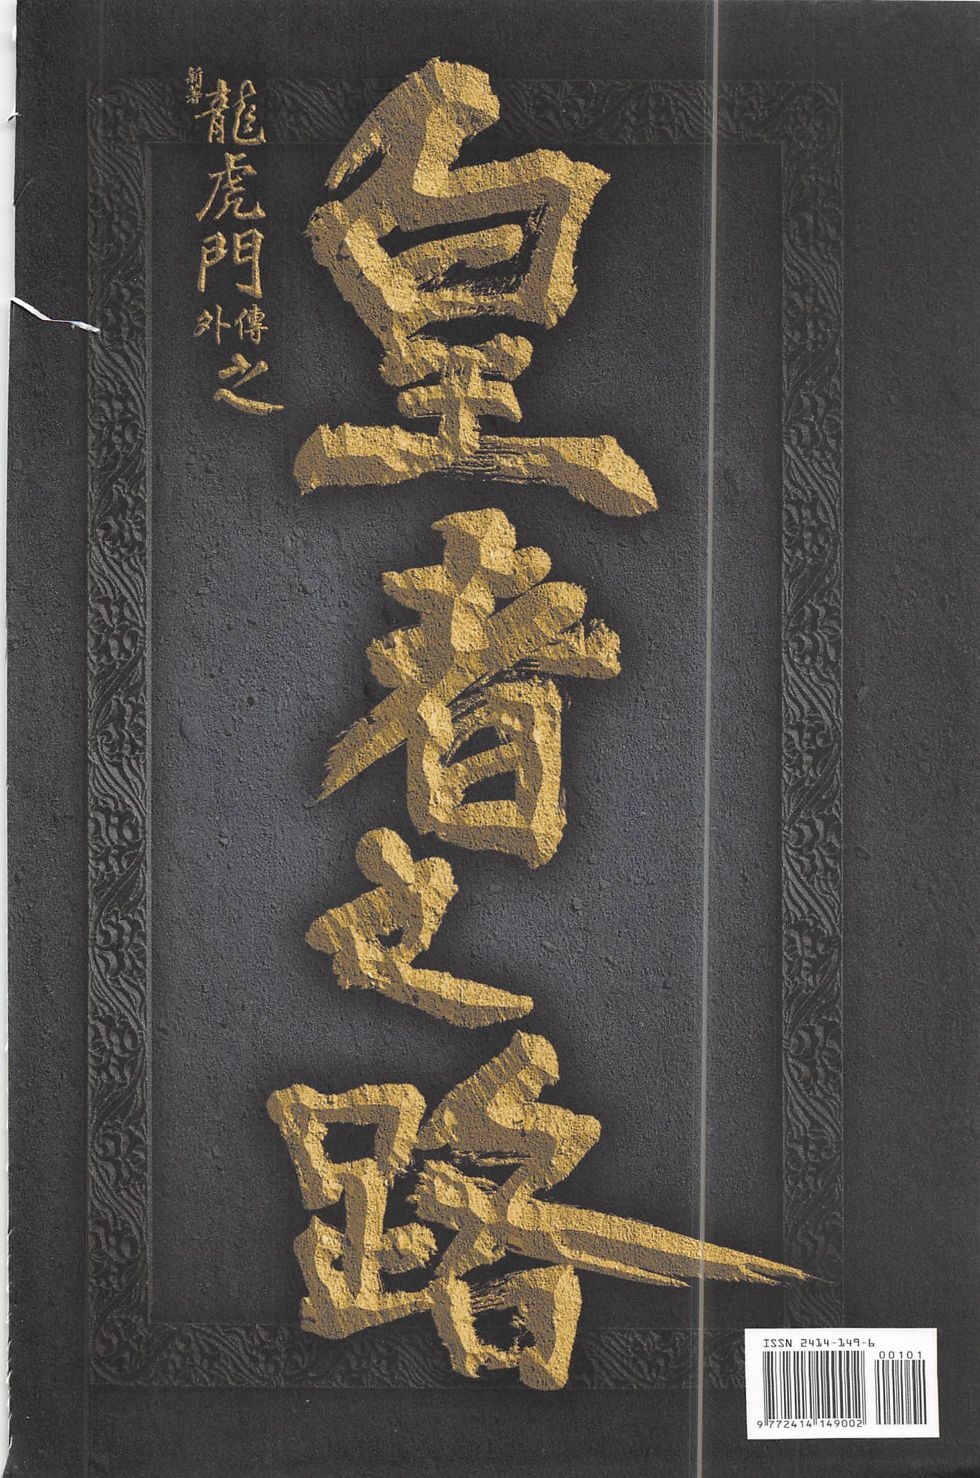 皇者之路
新著
龍虎門
外傳
之
ISSN 2414-149-6
00101
9 772414 149002